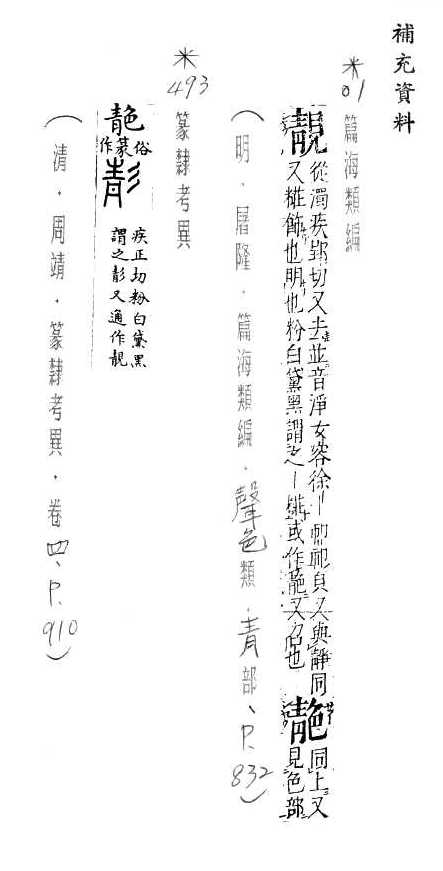 補充資料
*01
篇海類編
靚從濁疾郢切又去並音淨女容徐丨
又糚飾也明也粉白黛黑謂之丨糚或作靘又召也
靘同上又
見色部
(明.屠隆.篇海類編.聲色類.青部、P.832)
*493
篆隸考異
靘
俗篆作
彭 疾正切粉白黛黑
謂之彭又通作靚
(清.周靖.篆隸考異.卷四、P.910)